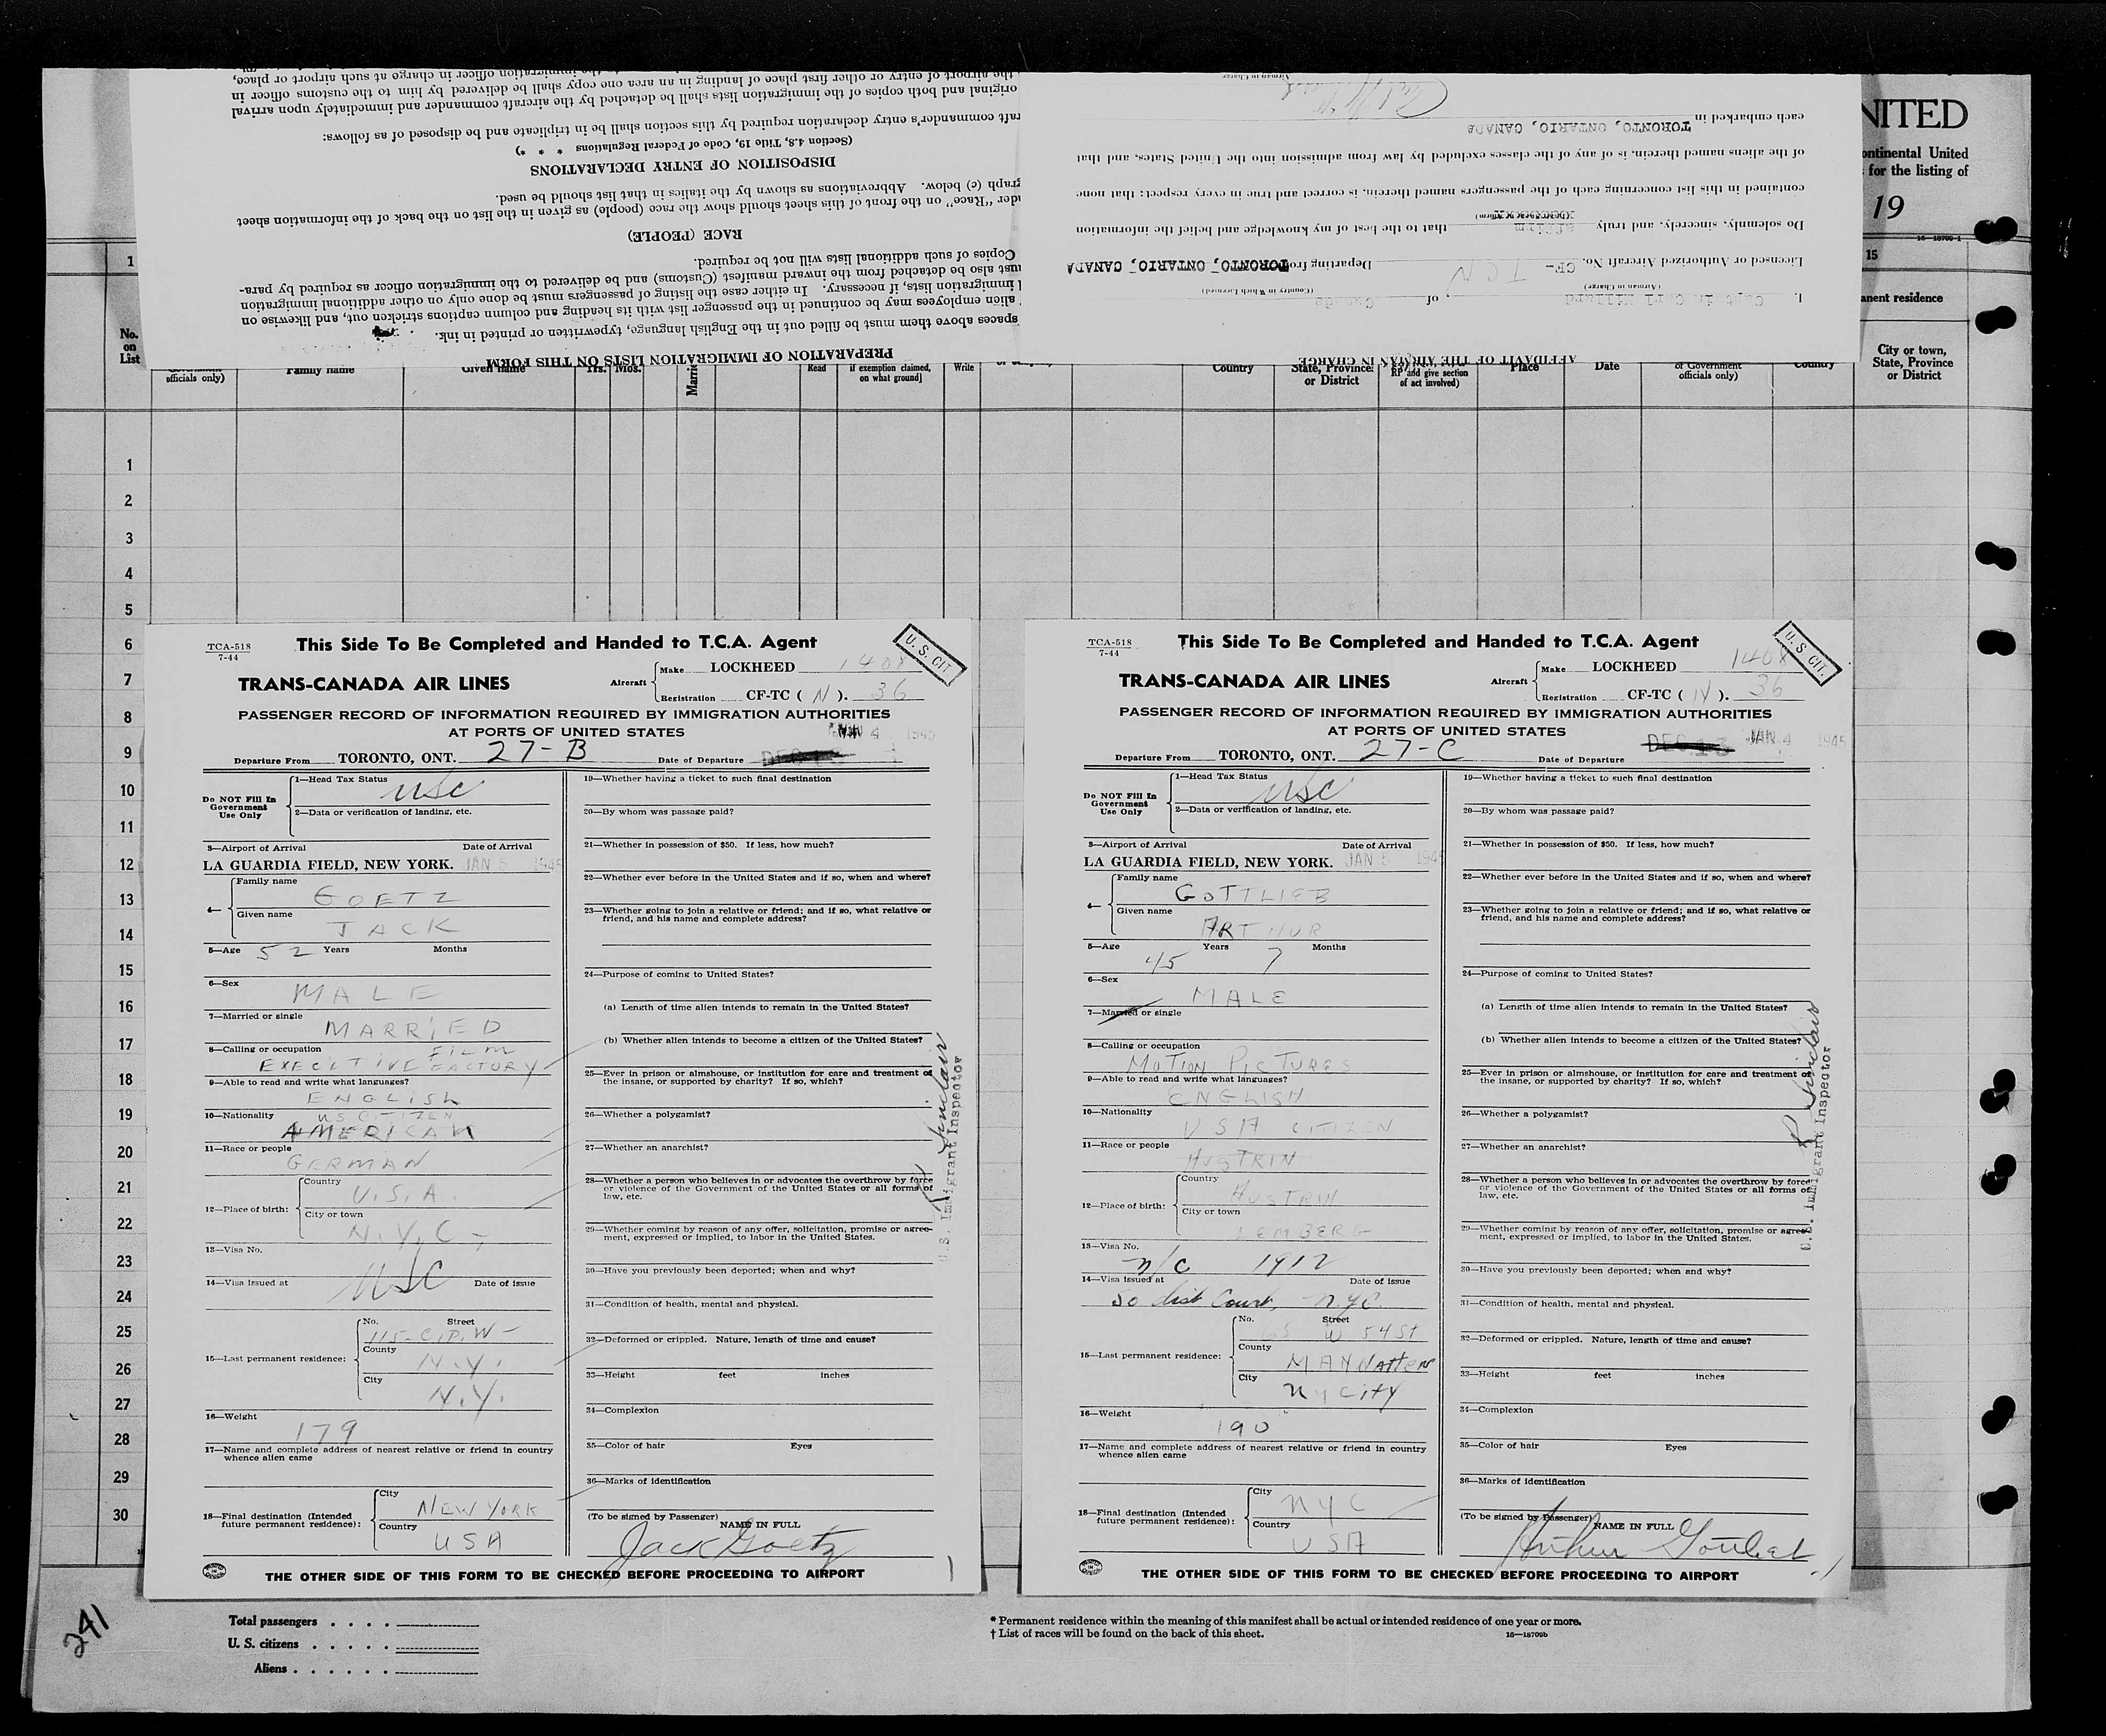 the airport of entry or other first place of landing in an area one copy shall be delivered by him to the customs officer in
original and both copies of the immigration lists shall be detached by the aircraft commander and immediately upon arrival
craft commander's entry declaration required by this section shall be in triplicate and be disposed of as follows:
(Section 4.8, Title 19, Code of Federal Regulations * * *)
DISPOSITION OF ENTRY DECLARATIONS
graph (c) below. Abbreviations as shown by the italics in that list should be used.
under "Race" on the front of this sheet should show the race (people) as given in the list on the back of the information sheet
RACE (PEOPLE)
Copies of such additional lists will not be required.
must also be detached from the inward manifest (Customs) and be delivered to the immigration officer as required by para-
immigration lists, if necessary. In either case the listing of passengers must be done only on other additional immigration
alien employees may be continued in the passenger list with its heading and column captions stricken out, and likewise on
spaces above them must be filled out in the English language, typewritten or printed in ink.
PREPARATION OF IMMIGRATION LISTS ON THIS FORM
AFFIDAVIT OF THE AIRMAN IN CHARGE
I, Captain Carl Millard of Canada
(Airman in Charge) (Country in Which Licensed)
Licensed or Authorized Aircraft No. CF- TCN Departing from TORONTO, ONTARIO, CANADA
Do solemnly, sincerely, and truly affirm that to the best of my knowledge and belief the information
contained in this list concerning each of the passengers named therein, is correct and true in every respect; that none
of the aliens named therein, is of any of the classes excluded by law from admission into the United States, and that
each embarked in TORONTO, ONTARIO, CANADA
Airman in Charge
NITED
ontinental United
for the listing of
19
16-18709-1
1
15
anent residence
No. on List
officials only)
Family name
Given name
Yrs. Mos.
Read
if exemption claimed, on what ground]
Write
Country
State, Province or District
RP and give section of act involved)
Place
Date
of Government officials only)
Country
City or town, State, Province or District
1
2
3
4
5
6
7
8
9
10
11
12
13
14
15
16
17
18
19
20
21
22
23
24
25
26
27
28
29
30
TCA-518
7-44
This Side To Be Completed and Handed to T.C.A. Agent
U. S. CIT.
TRANS-CANADA AIR LINES
Aircraft
Make LOCKHEED 1408
Registration CF-TC ( N ). 36
PASSENGER RECORD OF INFORMATION REQUIRED BY IMMIGRATION AUTHORITIES
AT PORTS OF UNITED STATES
JAN 4 1945
Departure From TORONTO, ONT. 27-B Date of Departure
Do NOT Fill In Government Use Only
1—Head Tax Status
USC
2—Data or verification of landing, etc.
3—Airport of Arrival Date of Arrival
LA GUARDIA FIELD, NEW YORK. JAN 5 1945
4— Family name
GOETZ
Given name
JACK
5—Age 52 Years Months
6—Sex
MALE
7—Married or single
MARRIED
8—Calling or occupation FILM
EXECUTIVE FACTORY
9—Able to read and write what languages?
ENGLISH
10—Nationality US CITIZEN
AMERICAN
11—Race or people
GERMAN
12—Place of birth:
Country
U.S.A.
City or town
N.Y.C.
13—Visa No.
USC
14—Visa issued at Date of issue
15—Last permanent residence:
No. Street
115-C.P.W-
County
N.Y.
City
N.Y.
16—Weight
179
17—Name and complete address of nearest relative or friend in country whence alien came
18—Final destination (Intended future permanent residence):
City
NEW YORK
Country
USA
19—Whether having a ticket to such final destination
20—By whom was passage paid?
21—Whether in possession of $50. If less, how much?
22—Whether ever before in the United States and if so, when and where?
23—Whether going to join a relative or friend; and if so, what relative or friend, and his name and complete address?
24—Purpose of coming to United States?
(a) Length of time alien intends to remain in the United States?
(b) Whether alien intends to become a citizen of the United States?
25—Ever in prison or almshouse, or institution for care and treatment of the insane, or supported by charity? If so, which?
26—Whether a polygamist?
27—Whether an anarchist?
28—Whether a person who believes in or advocates the overthrow by force or violence of the Government of the United States or all forms of law, etc.
29—Whether coming by reason of any offer, solicitation, promise or agreement, expressed or implied, to labor in the United States.
30—Have you previously been deported; when and why?
31—Condition of health, mental and physical.
32—Deformed or crippled. Nature, length of time and cause?
33—Height feet inches
34—Complexion
35—Color of hair Eyes
36—Marks of identification
(To be signed by Passenger) NAME IN FULL
Jack Goetz
R Sinclair
U.S. Immigrant Inspector
THE OTHER SIDE OF THIS FORM TO BE CHECKED BEFORE PROCEEDING TO AIRPORT
TCA-518
7-44
This Side To Be Completed and Handed to T.C.A. Agent
U. S. CIT.
TRANS-CANADA AIR LINES
Aircraft
Make LOCKHEED 1408
Registration CF-TC ( N ). 36
PASSENGER RECORD OF INFORMATION REQUIRED BY IMMIGRATION AUTHORITIES
AT PORTS OF UNITED STATES
DEC 13 JAN 4 1945
Departure From TORONTO, ONT. 27-C Date of Departure
Do NOT Fill In Government Use Only
1—Head Tax Status
USC
2—Data or verification of landing, etc.
3—Airport of Arrival Date of Arrival
LA GUARDIA FIELD, NEW YORK. JAN 5 1945
4— Family name
GOTTLIEB
Given name
ARTHUR
5—Age Years Months
45 7
6—Sex
MALE
7—Married or single
8—Calling or occupation
MOTION PICTURES
9—Able to read and write what languages?
ENGLISH
10—Nationality
USA CITIZEN
11—Race or people
AUSTRIA
12—Place of birth:
Country
AUSTRIA
City or town
LEMBERG
13—Visa No.
n/c 1912
14—Visa issued at Date of issue
So dist Court, N.Y.C.
15—Last permanent residence:
No. Street
65 W 54 St
County
MANHATTEN
City
NY CITY
16—Weight
190
17—Name and complete address of nearest relative or friend in country whence alien came
18—Final destination (Intended future permanent residence):
City
NYC
Country
USA
19—Whether having a ticket to such final destination
20—By whom was passage paid?
21—Whether in possession of $50. If less, how much?
22—Whether ever before in the United States and if so, when and where?
23—Whether going to join a relative or friend; and if so, what relative or friend, and his name and complete address?
24—Purpose of coming to United States?
(a) Length of time alien intends to remain in the United States?
(b) Whether alien intends to become a citizen of the United States?
25—Ever in prison or almshouse, or institution for care and treatment of the insane, or supported by charity? If so, which?
26—Whether a polygamist?
27—Whether an anarchist?
28—Whether a person who believes in or advocates the overthrow by force or violence of the Government of the United States or all forms of law, etc.
29—Whether coming by reason of any offer, solicitation, promise or agreement, expressed or implied, to labor in the United States.
30—Have you previously been deported; when and why?
31—Condition of health, mental and physical.
32—Deformed or crippled. Nature, length of time and cause?
33—Height feet inches
34—Complexion
35—Color of hair Eyes
36—Marks of identification
(To be signed by Passenger) NAME IN FULL
Arthur Gottlieb
R Sinclair
U.S. Immigrant Inspector
THE OTHER SIDE OF THIS FORM TO BE CHECKED BEFORE PROCEEDING TO AIRPORT
241
Total passengers
U. S. citizens
Aliens
* Permanent residence within the meaning of this manifest shall be actual or intended residence of one year or more.
† List of races will be found on the back of this sheet.
16—18709b